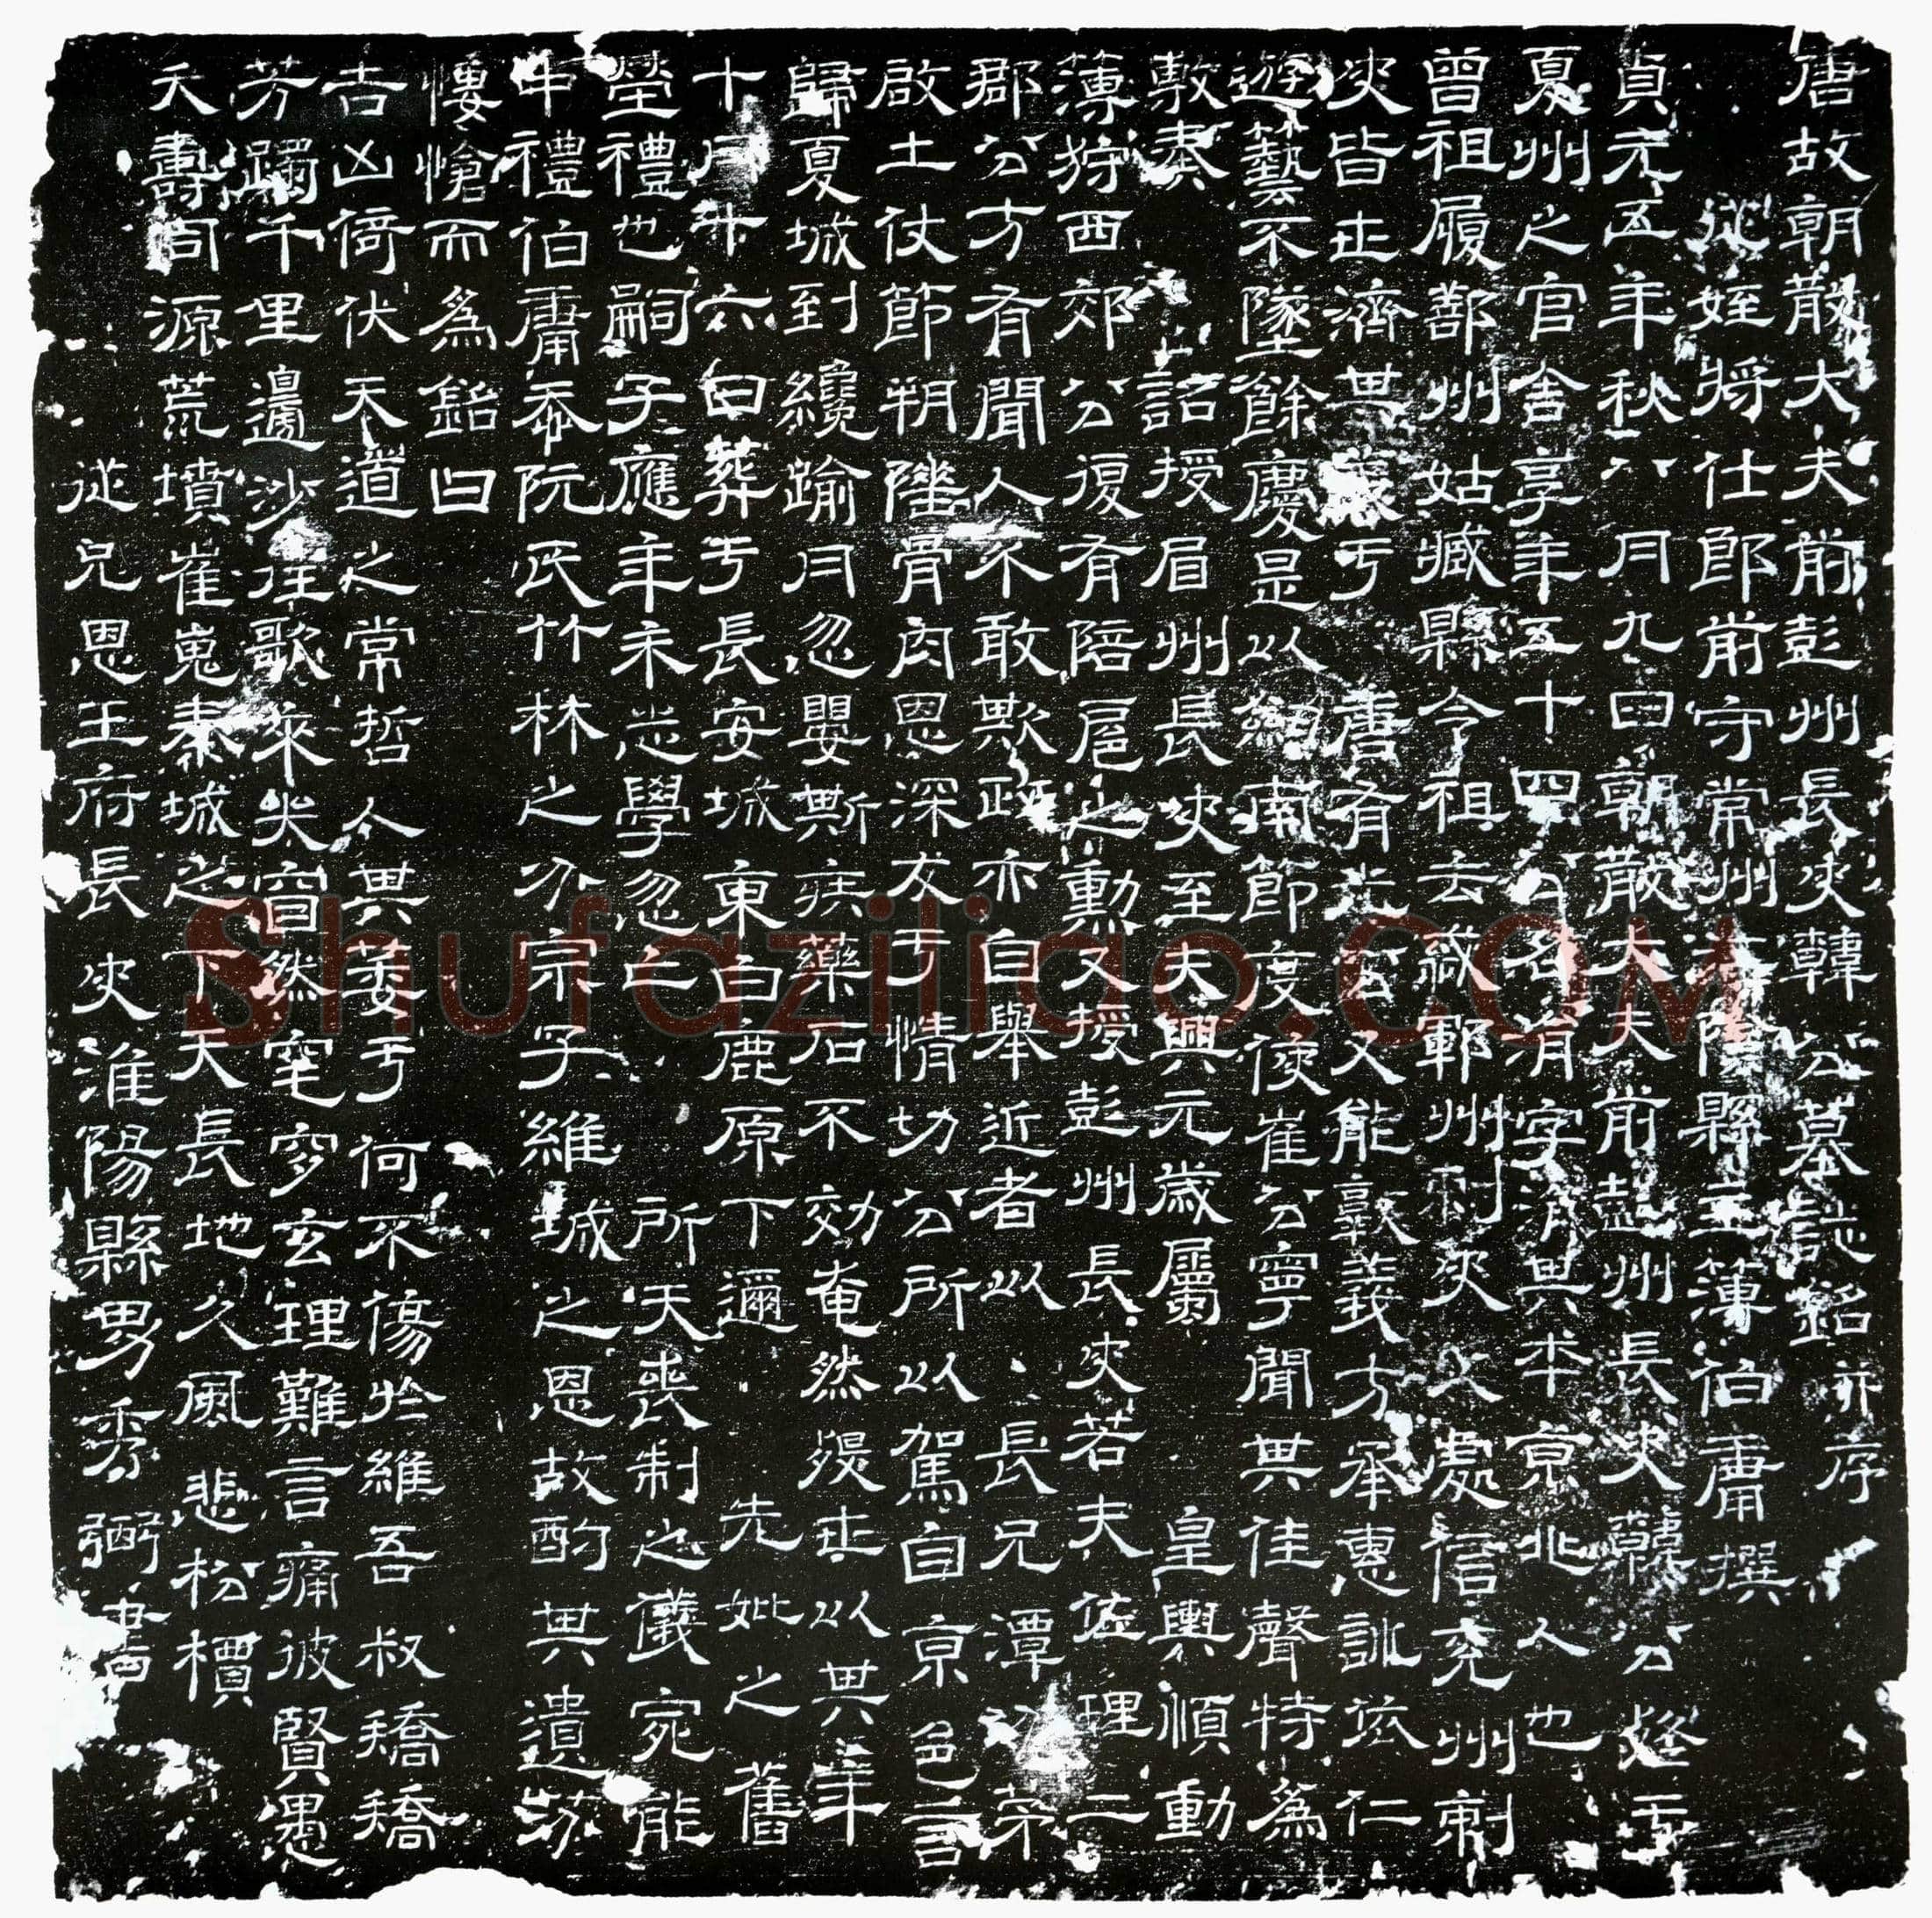 唐故朝散大夫前彭州長史韓公墓誌銘并序
從姪將仕郎前守常州江陰縣主簿伯庸撰
貞元五年秋八月九日朝散大夫前彭州長史韓公終于
夏州之官舍享年五十四公名涓字涓其本京兆人也
曾祖履鄯州姑臧縣令祖去鄆州刺史父處信兗州刺
史皆世濟其于唐有光公又能敦義方承惠訓依仁
遊藝不墜餘慶是以劍南節度使崔公寧聞其佳聲特爲
敷奏詔授眉州長史至夫興元歲屬皇輿順動
薄狩西郊公復有陪扈之勳又授彭州長史若夫佐理二
郡公方有聞人不敢欺政亦自舉近者以長兄潭帥
啟土仗節朔陲骨肉恩深友于情切公所以駕自京邑言
歸夏城到纔踰月忽嬰斯疾藥石不効奄然歿世以其年
十月廿六日葬于長安城東白鹿原下邇先妣之舊
塋禮也嗣子應年未志學忽亡所天喪制之儀宛能
中禮伯庸忝阮氏竹林之介宗子維城之恩故酌其遺芬
悽愴而爲銘曰
吉凶倚伏天道之常哲人其萎于何不傷於維吾叔矯矯
芳躅千里邊沙往歌來哭窅然窀穸玄理難言痛彼賢愚
夭壽同源荒墳崔嵬秦城之下天長地久風悲松檟
從兄恩王府長史淮陽縣男秀弼書
Shufaziliao.COM